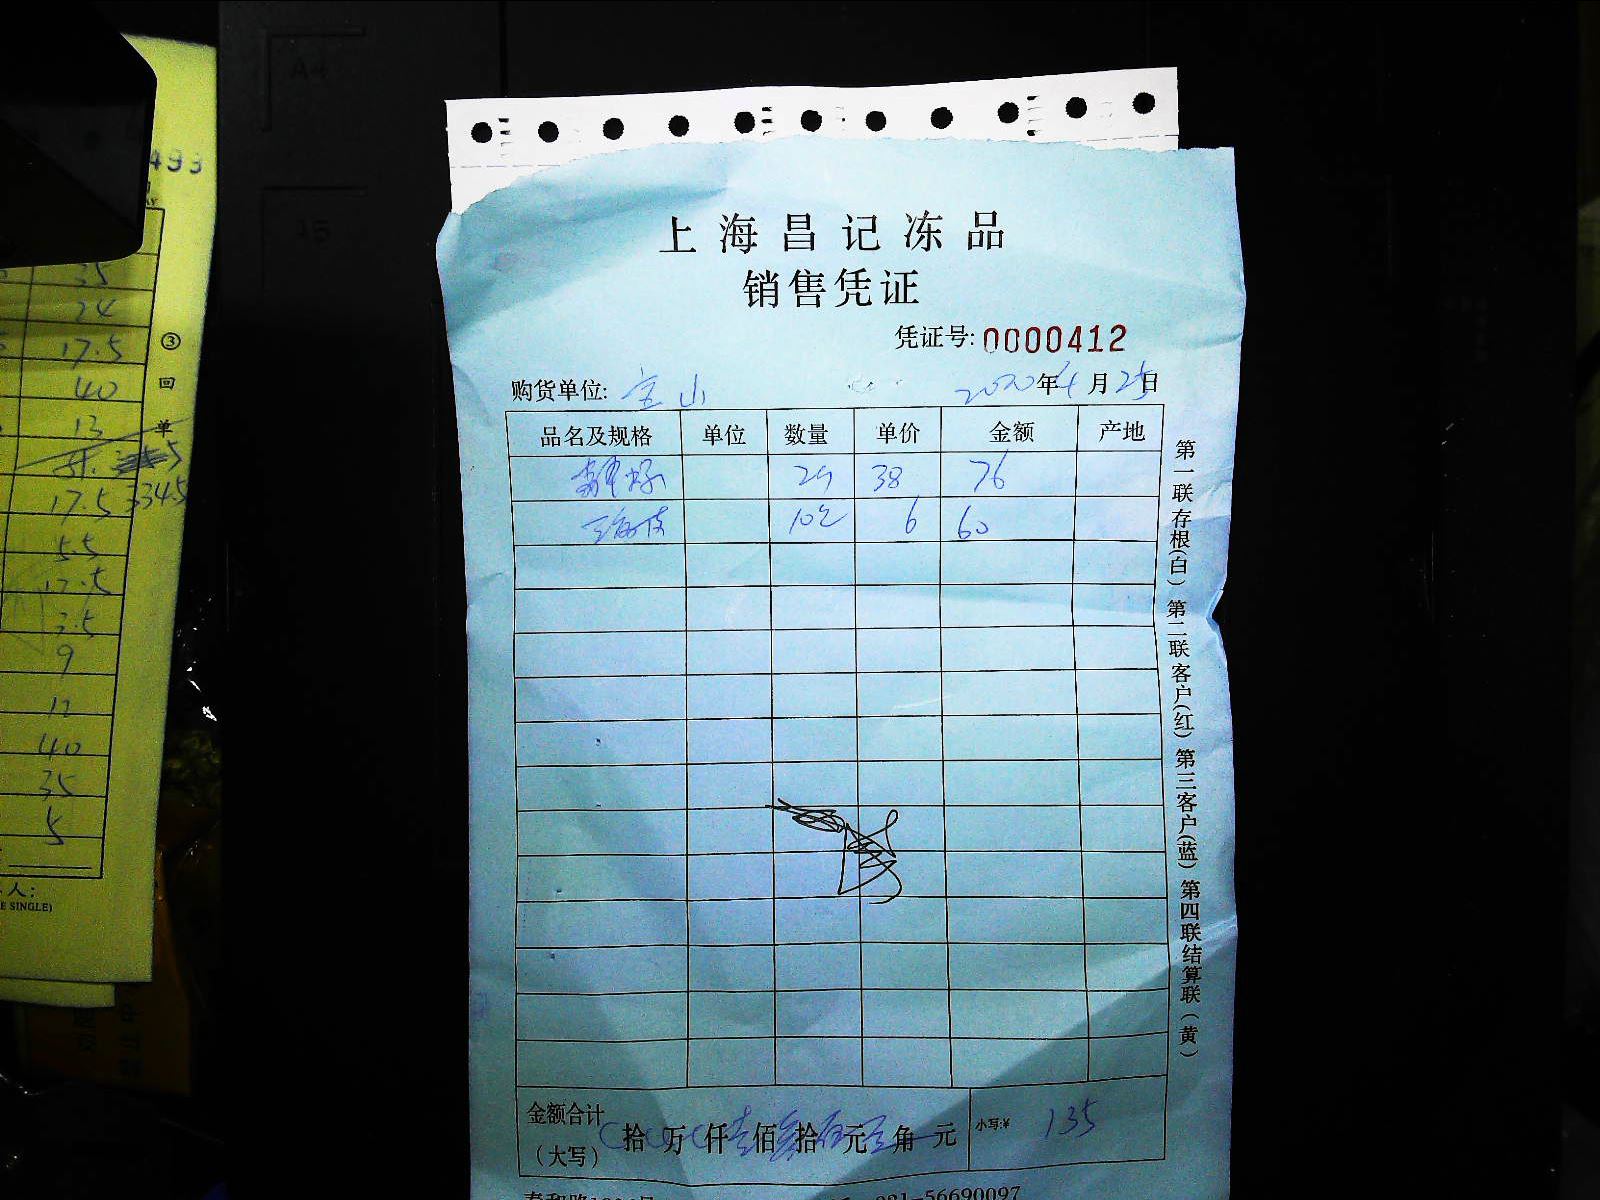 A4
493
35
24
17.5
40
13
17.5
5.5
17.5
3.5
9
12
40
35
5
③回单
人:
E SINGLE)
上海昌记冻品
销售凭证
凭证号: 0000412
购货单位: 宝山 2020年4月25日
品名及规格 单位 数量 单价 金额 产地
38 76
6 60
金额合计
(大写) 拾 万 仟壹佰叁拾伍元 角 元 小写:¥ 135
021-56690097
第一联存根(白) 第二联客户(红) 第三客户(蓝) 第四联结算联(黄)